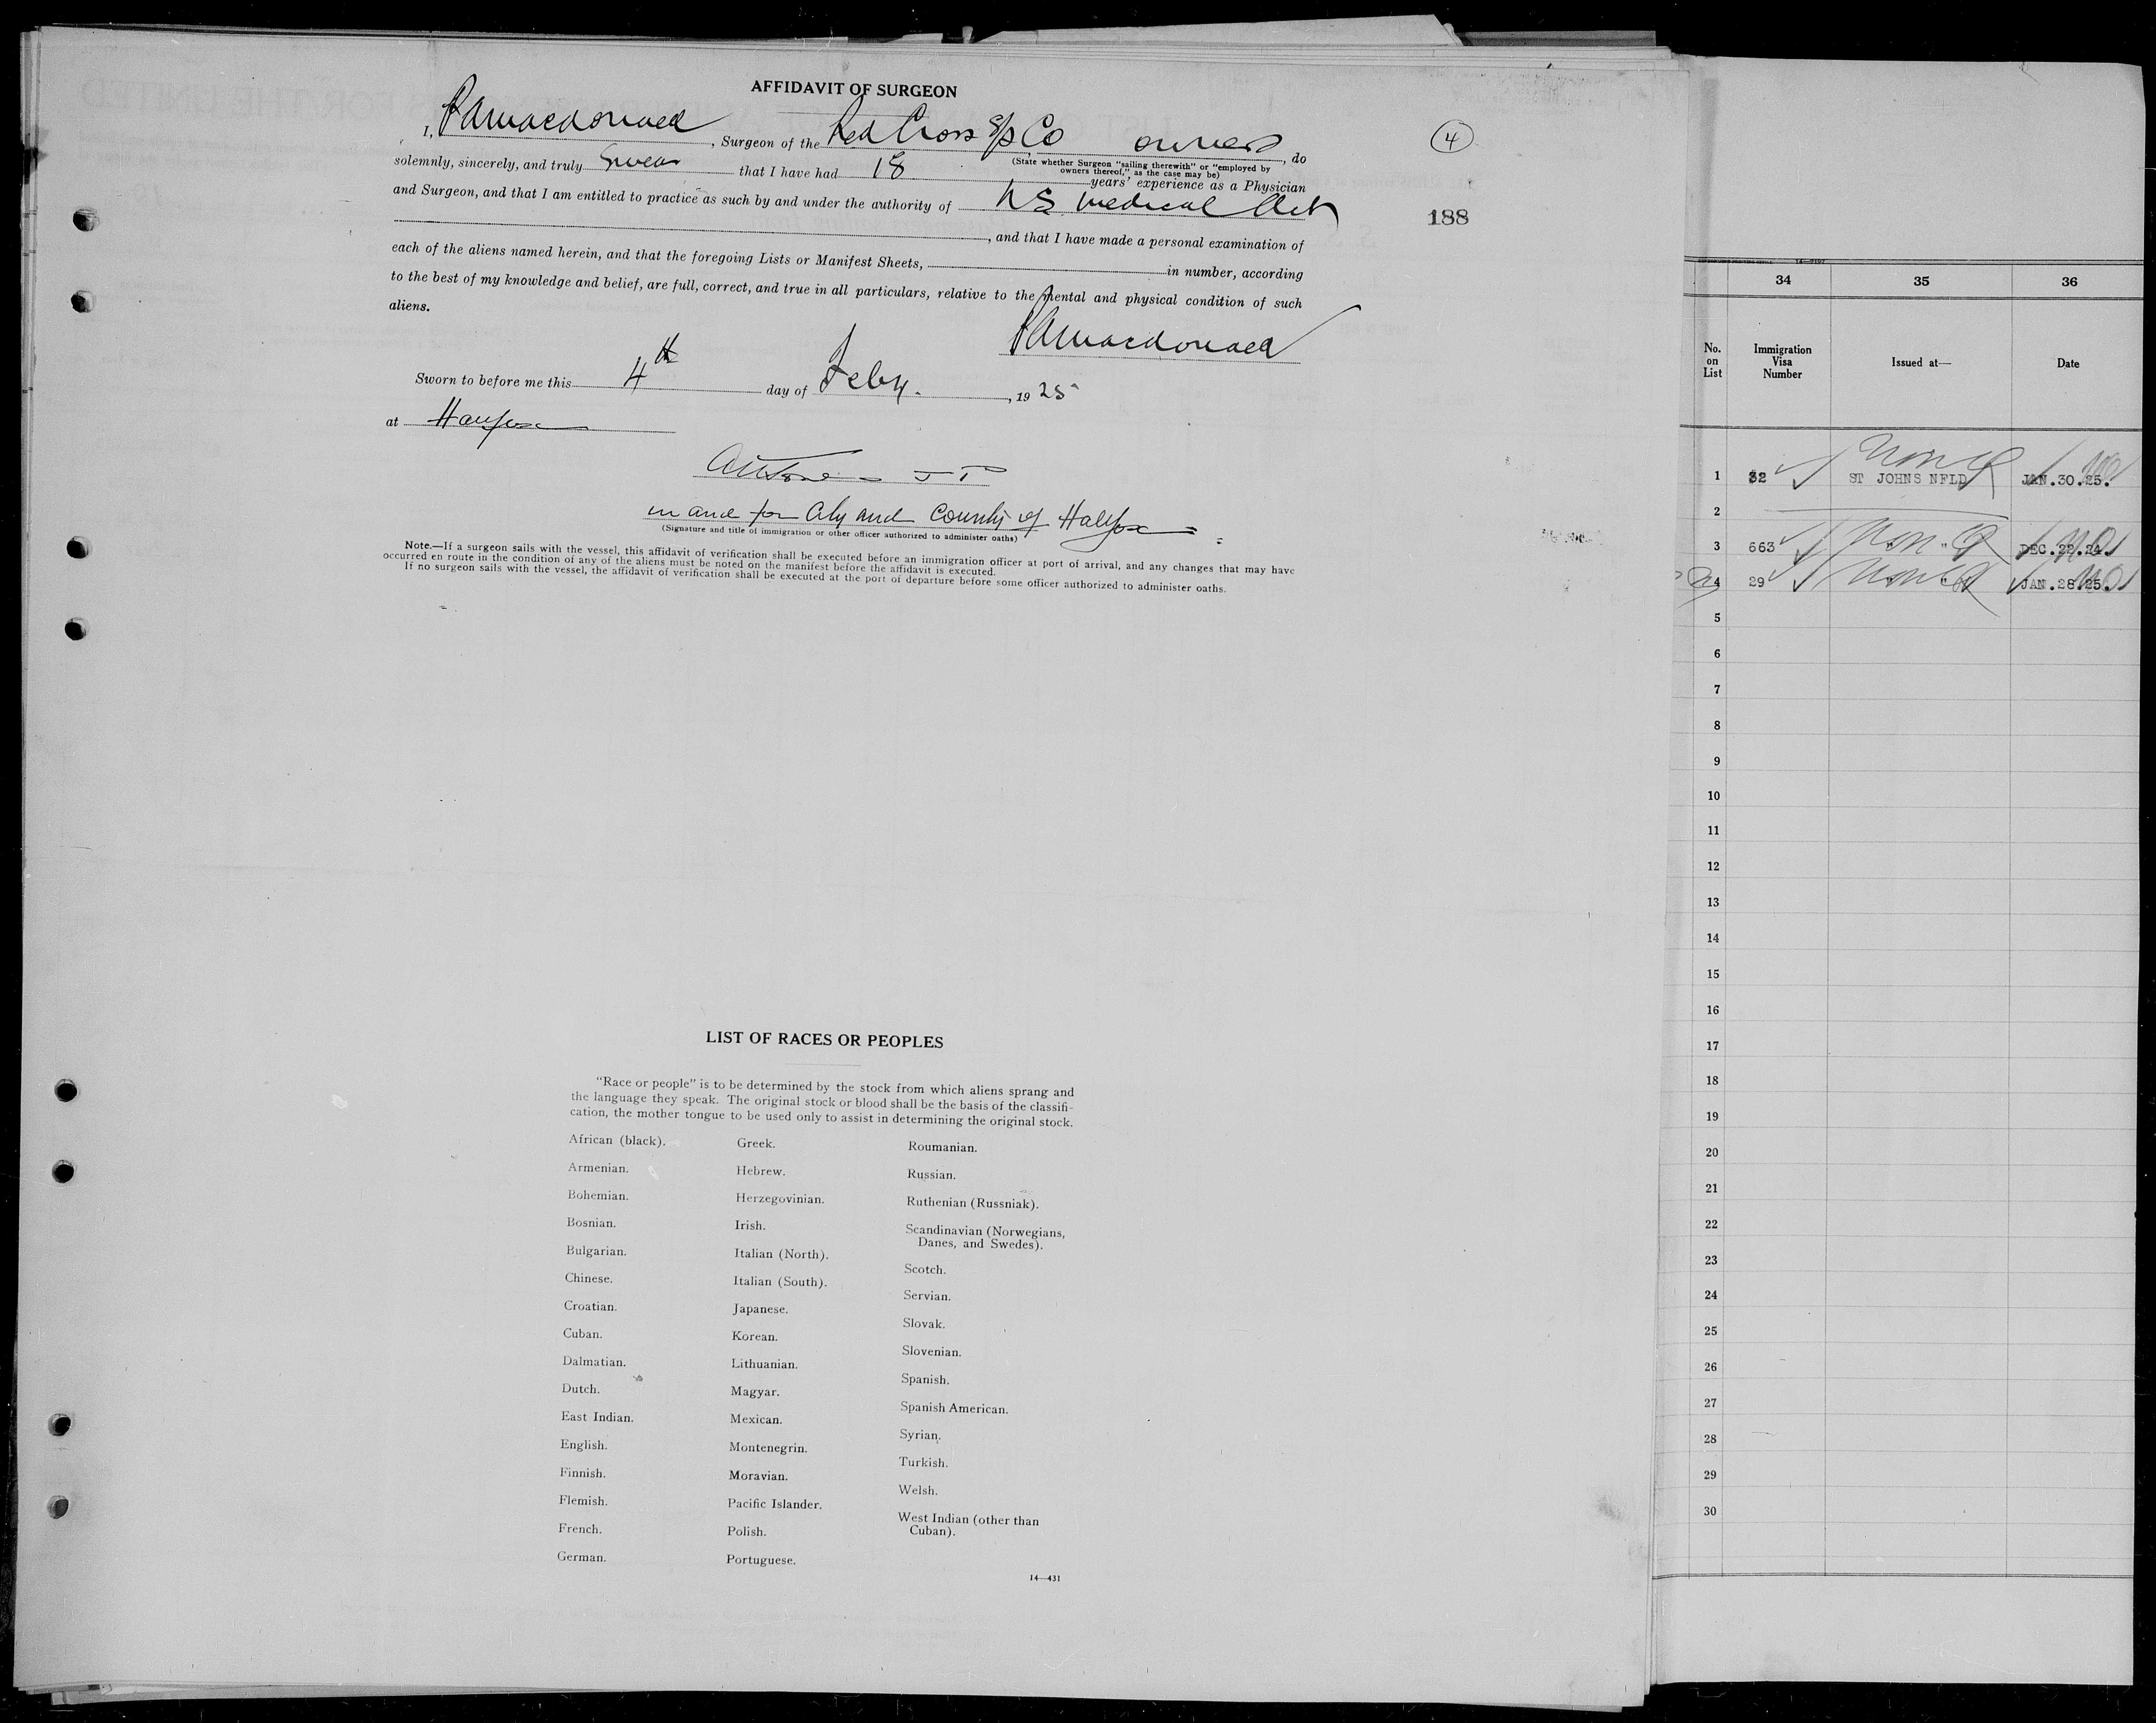 AFFIDAVIT OF SURGEON
I, PAMacdonald, Surgeon of the Red Cross S/S Co owners, do
(State whether Surgeon "sailing therewith" or "employed by
owners thereof," as the case may be)
solemnly, sincerely, and truly swear that I have had 18 years' experience as a Physician
and Surgeon, and that I am entitled to practice as such by and under the authority of NS Medical Act
, and that I have made a personal examination of
each of the aliens named herein, and that the foregoing Lists or Manifest Sheets, in number, according
to the best of my knowledge and belief, are full, correct, and true in all particulars, relative to the mental and physical condition of such
aliens.
PAMacdonald
Sworn to before me this 4th day of Feby., 1925
at Halifax
J P
in and for City and County of Halifax
(Signature and title of immigration or other officer authorized to administer oaths)
Note.—If a surgeon sails with the vessel, this affidavit of verification shall be executed before an immigration officer at port of arrival, and any changes that may have
occurred en route in the condition of any of the aliens must be noted on the manifest before the affidavit is executed.
If no surgeon sails with the vessel, the affidavit of verification shall be executed at the port of departure before some officer authorized to administer oaths.
4
188
LIST OF RACES OR PEOPLES
"Race or people" is to be determined by the stock from which aliens sprang and
the language they speak. The original stock or blood shall be the basis of the classifi-
cation, the mother tongue to be used only to assist in determining the original stock.
African (black).
Armenian.
Bohemian.
Bosnian.
Bulgarian.
Chinese.
Croatian.
Cuban.
Dalmatian.
Dutch.
East Indian.
English.
Finnish.
Flemish.
French.
German.
Greek.
Hebrew.
Herzegovinian.
Irish.
Italian (North).
Italian (South).
Japanese.
Korean.
Lithuanian.
Magyar.
Mexican.
Montenegrin.
Moravian.
Pacific Islander.
Polish.
Portuguese.
Roumanian.
Russian.
Ruthenian (Russniak).
Scandinavian (Norwegians,
Danes, and Swedes).
Scotch.
Servian.
Slovak.
Slovenian.
Spanish.
Spanish American.
Syrian.
Turkish.
Welsh.
West Indian (other than
Cuban).
14—431
34 35 36
No.
on
List
Immigration
Visa
Number
Issued at—
Date
1 32 ST JOHNS NFLD JAN.30.25.
2
3 663 " " DEC.22.24.
4 29 " " JAN.28.25.
5
6
7
8
9
10
11
12
13
14
15
16
17
18
19
20
21
22
23
24
25
26
27
28
29
30